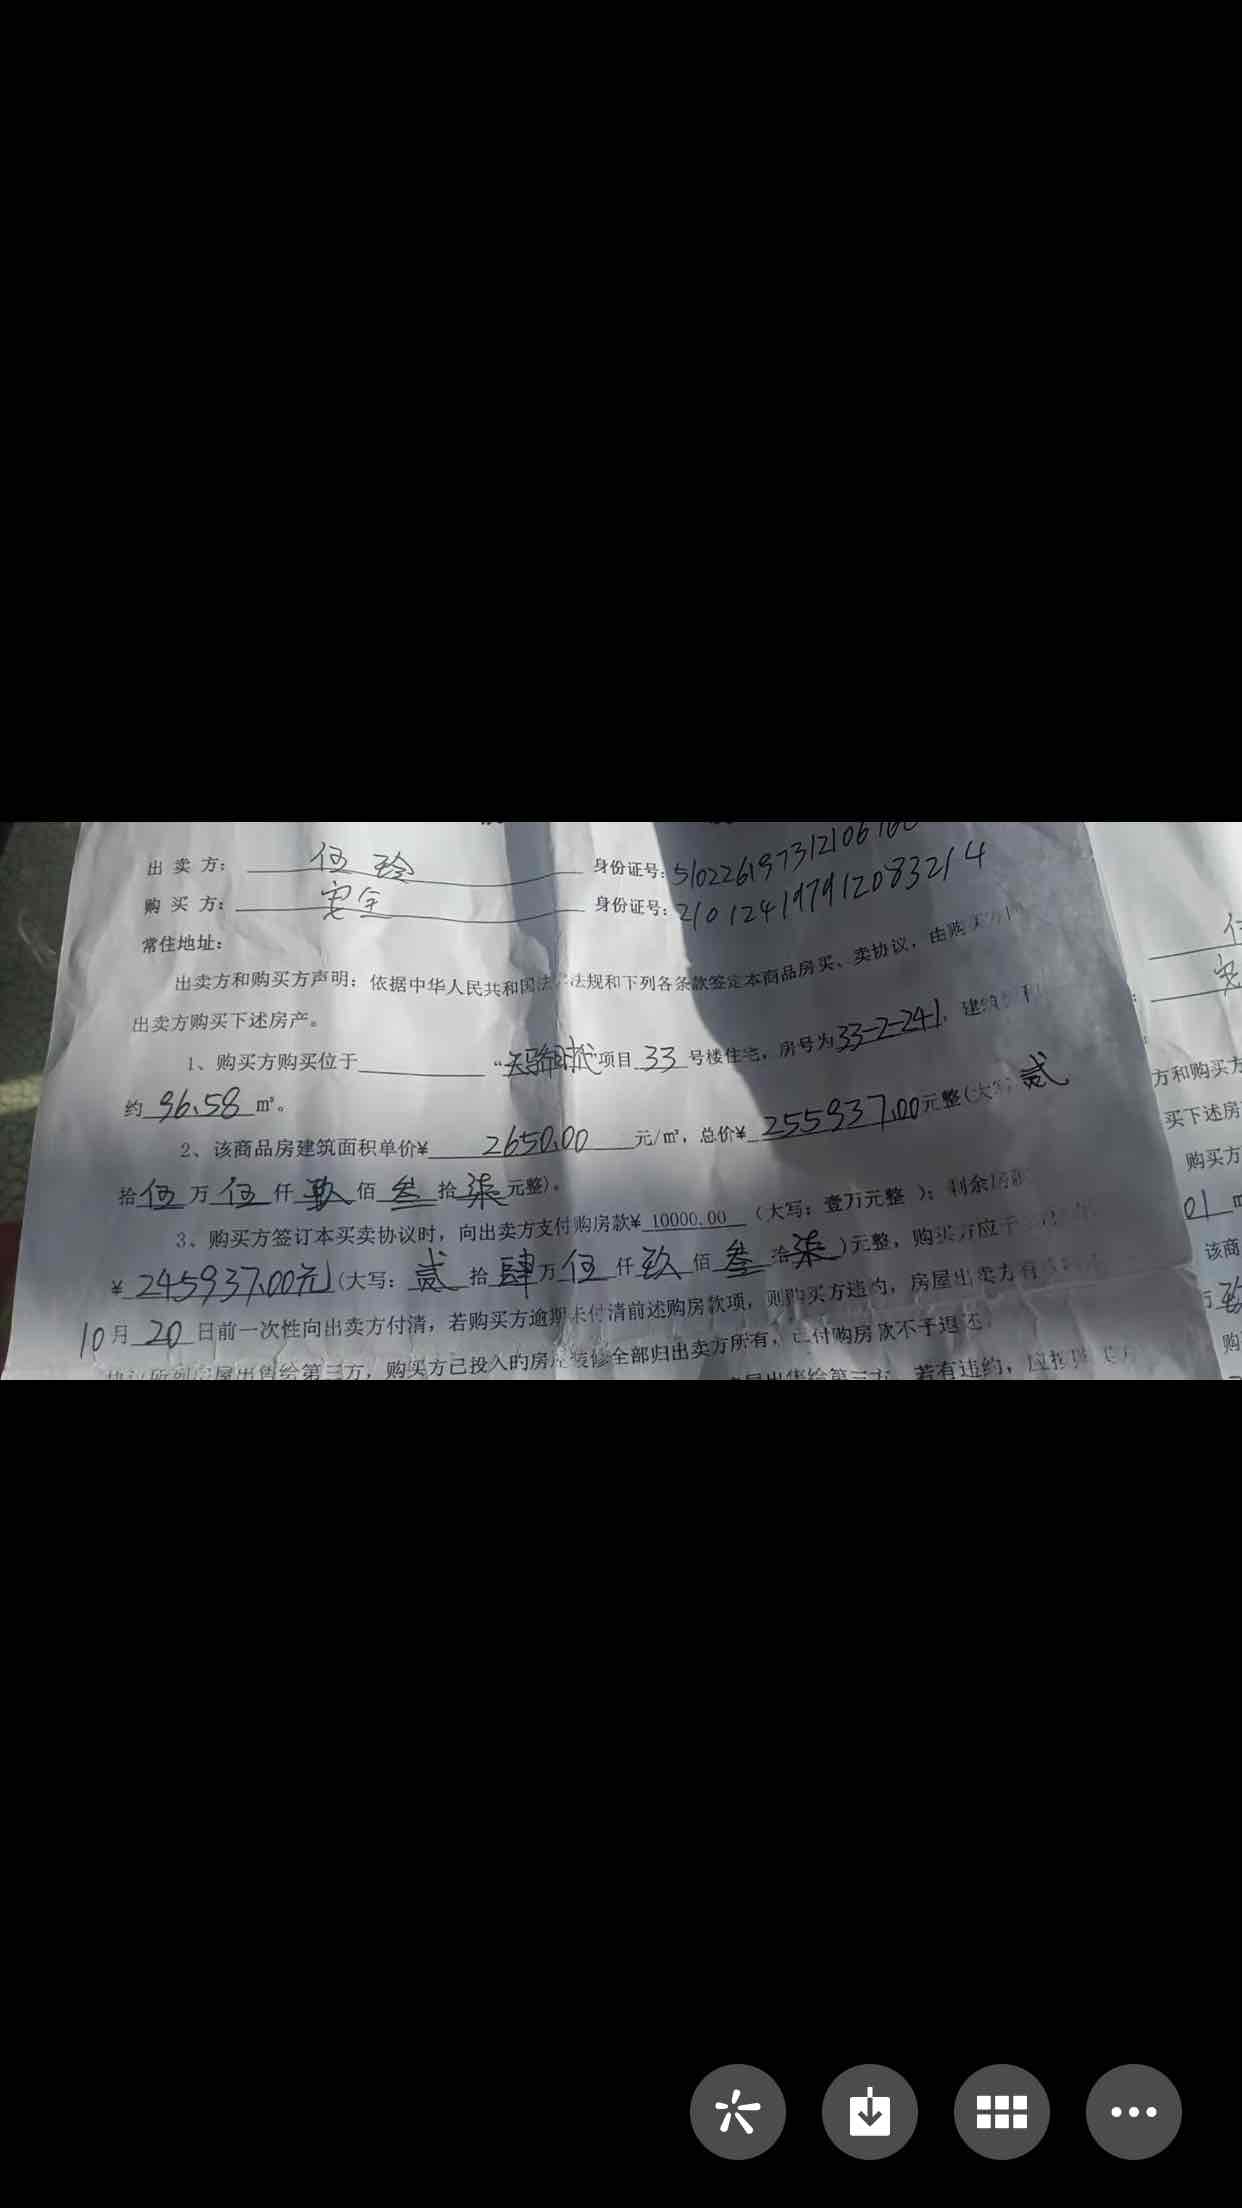 出卖方： 伍玲 身份证号：51022619731210616
购买方： 安全 身份证号：210124197912083214
常住地址：
出卖方和购买方声明：依据中华人民共和国法 法规和下列各条款签定本商品房买、卖协议，由购买方
出卖方购买下述房产。
1、购买方购买位于 “天骄时代”项目 33 号楼住宅，房号为33-2-24-1，建筑
约 96.58 ㎡。
2、该商品房建筑面积单价¥ 2650.00 元/㎡，总价¥ 255937.00元整(大写：贰
拾伍万伍仟玖佰叁拾柒元整)。
3、购买方签订本买卖协议时，向出卖方支付购房款¥ 10000.00 （大写：壹万元整 ）；剩余
¥ 245937.00元(大写：贰拾肆万伍仟玖佰叁拾柒)元整，购买方应于
10月 20 日前一次性向出卖方付清，若购买方逾期未付清前述购房款项，则购买方违约，房屋出卖方有
房屋出售给第三方，购买方已投入的房屋装修全部归出卖方所有，已付购房款不予退还
房屋出售给第三方，若有违约，应按
方和购买方
买下述房
购买方
01
该商
万 玖
购